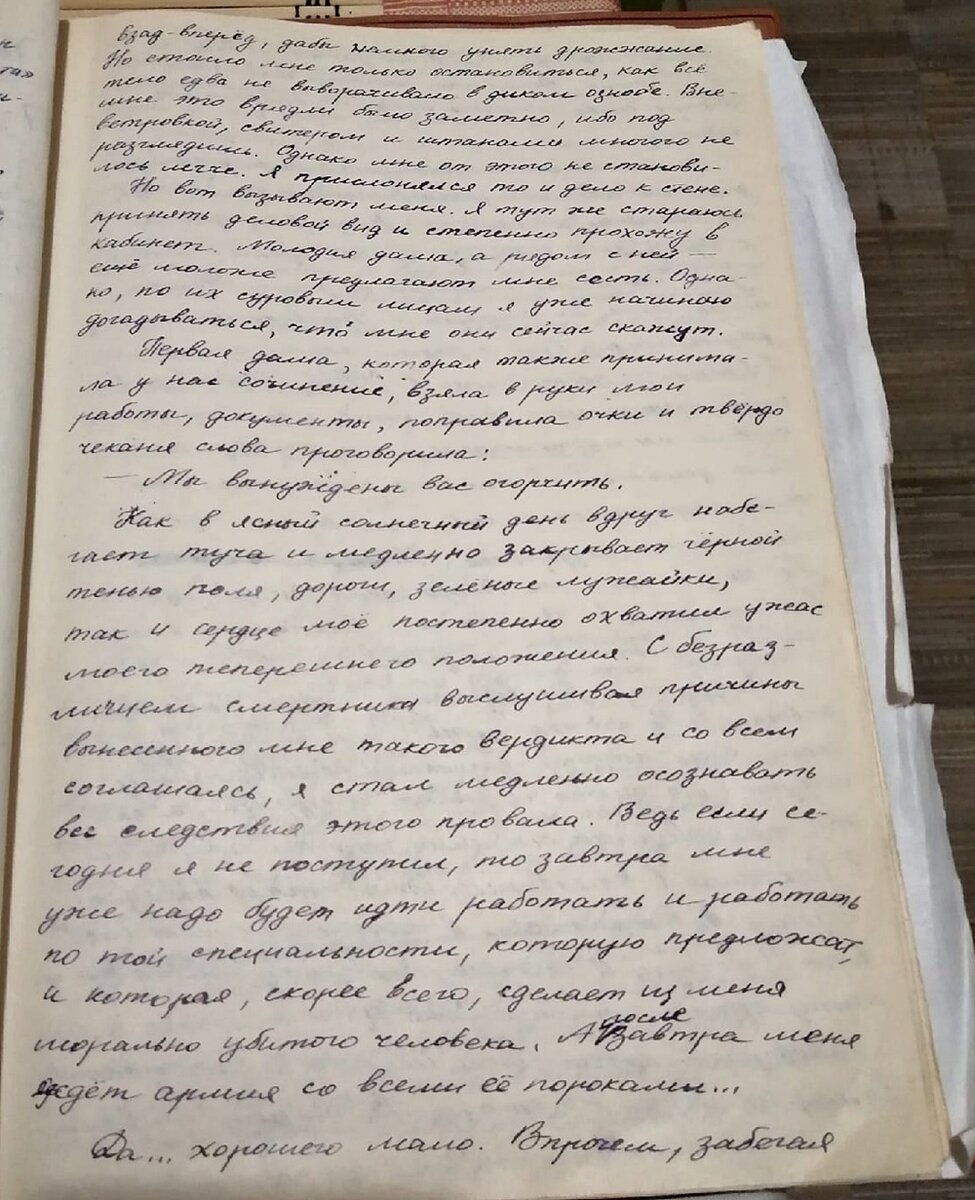 взад-вперёд, дабы немного унять дрожжание.
Но стоило мне только остановиться, как всё
тело едва не выворачивало в диком ознобе. Вне-
мне это врядли было заметно, ибо под
ветровкой, свитером и штанами многого не
разглядишь. Однако мне от этого не станови-
лось легче. Я прислонялся то и дело к стене.
Но вот вызывают меня. Я тут же стараюсь
принять деловой вид и степенно прохожу в
кабинет. Молодая дама, а рядом с ней —
ещё моложе предлагают мне сесть. Одна-
ко, по их суровым лицам я уже начинаю
догадываться, что мне они сейчас скажут.
Первая дама, которая также принима-
ла у нас сочинение, взяла в руки мои
работы, документы, поправила очки и твёрдо
чеканя слова проговорила:
— Мы вынуждены вас огорчить.
Как в ясный солнечный день вдруг набе-
гает туча и медленно закрывает чёрной
тенью поля, дороги, зелёные лужайки,
так и сердце моё постепенно охватил ужас
моего теперешнего положения. С безраз-
личием смертника выслушивая причины
вынесенного мне такого вердикта и со всем
соглашаясь, я стал медленно осознавать
все следствия этого провала. Ведь если се-
годня я не поступил, то завтра мне
уже надо будет идти работать и работать
по той специальности, которую предложат,
и которая, скорее всего, сделает из меня
морально убитого человека. А послезавтра меня
ждёт армия со всеми её пороками...
Да... хорошего мало. Впрочем, забегая